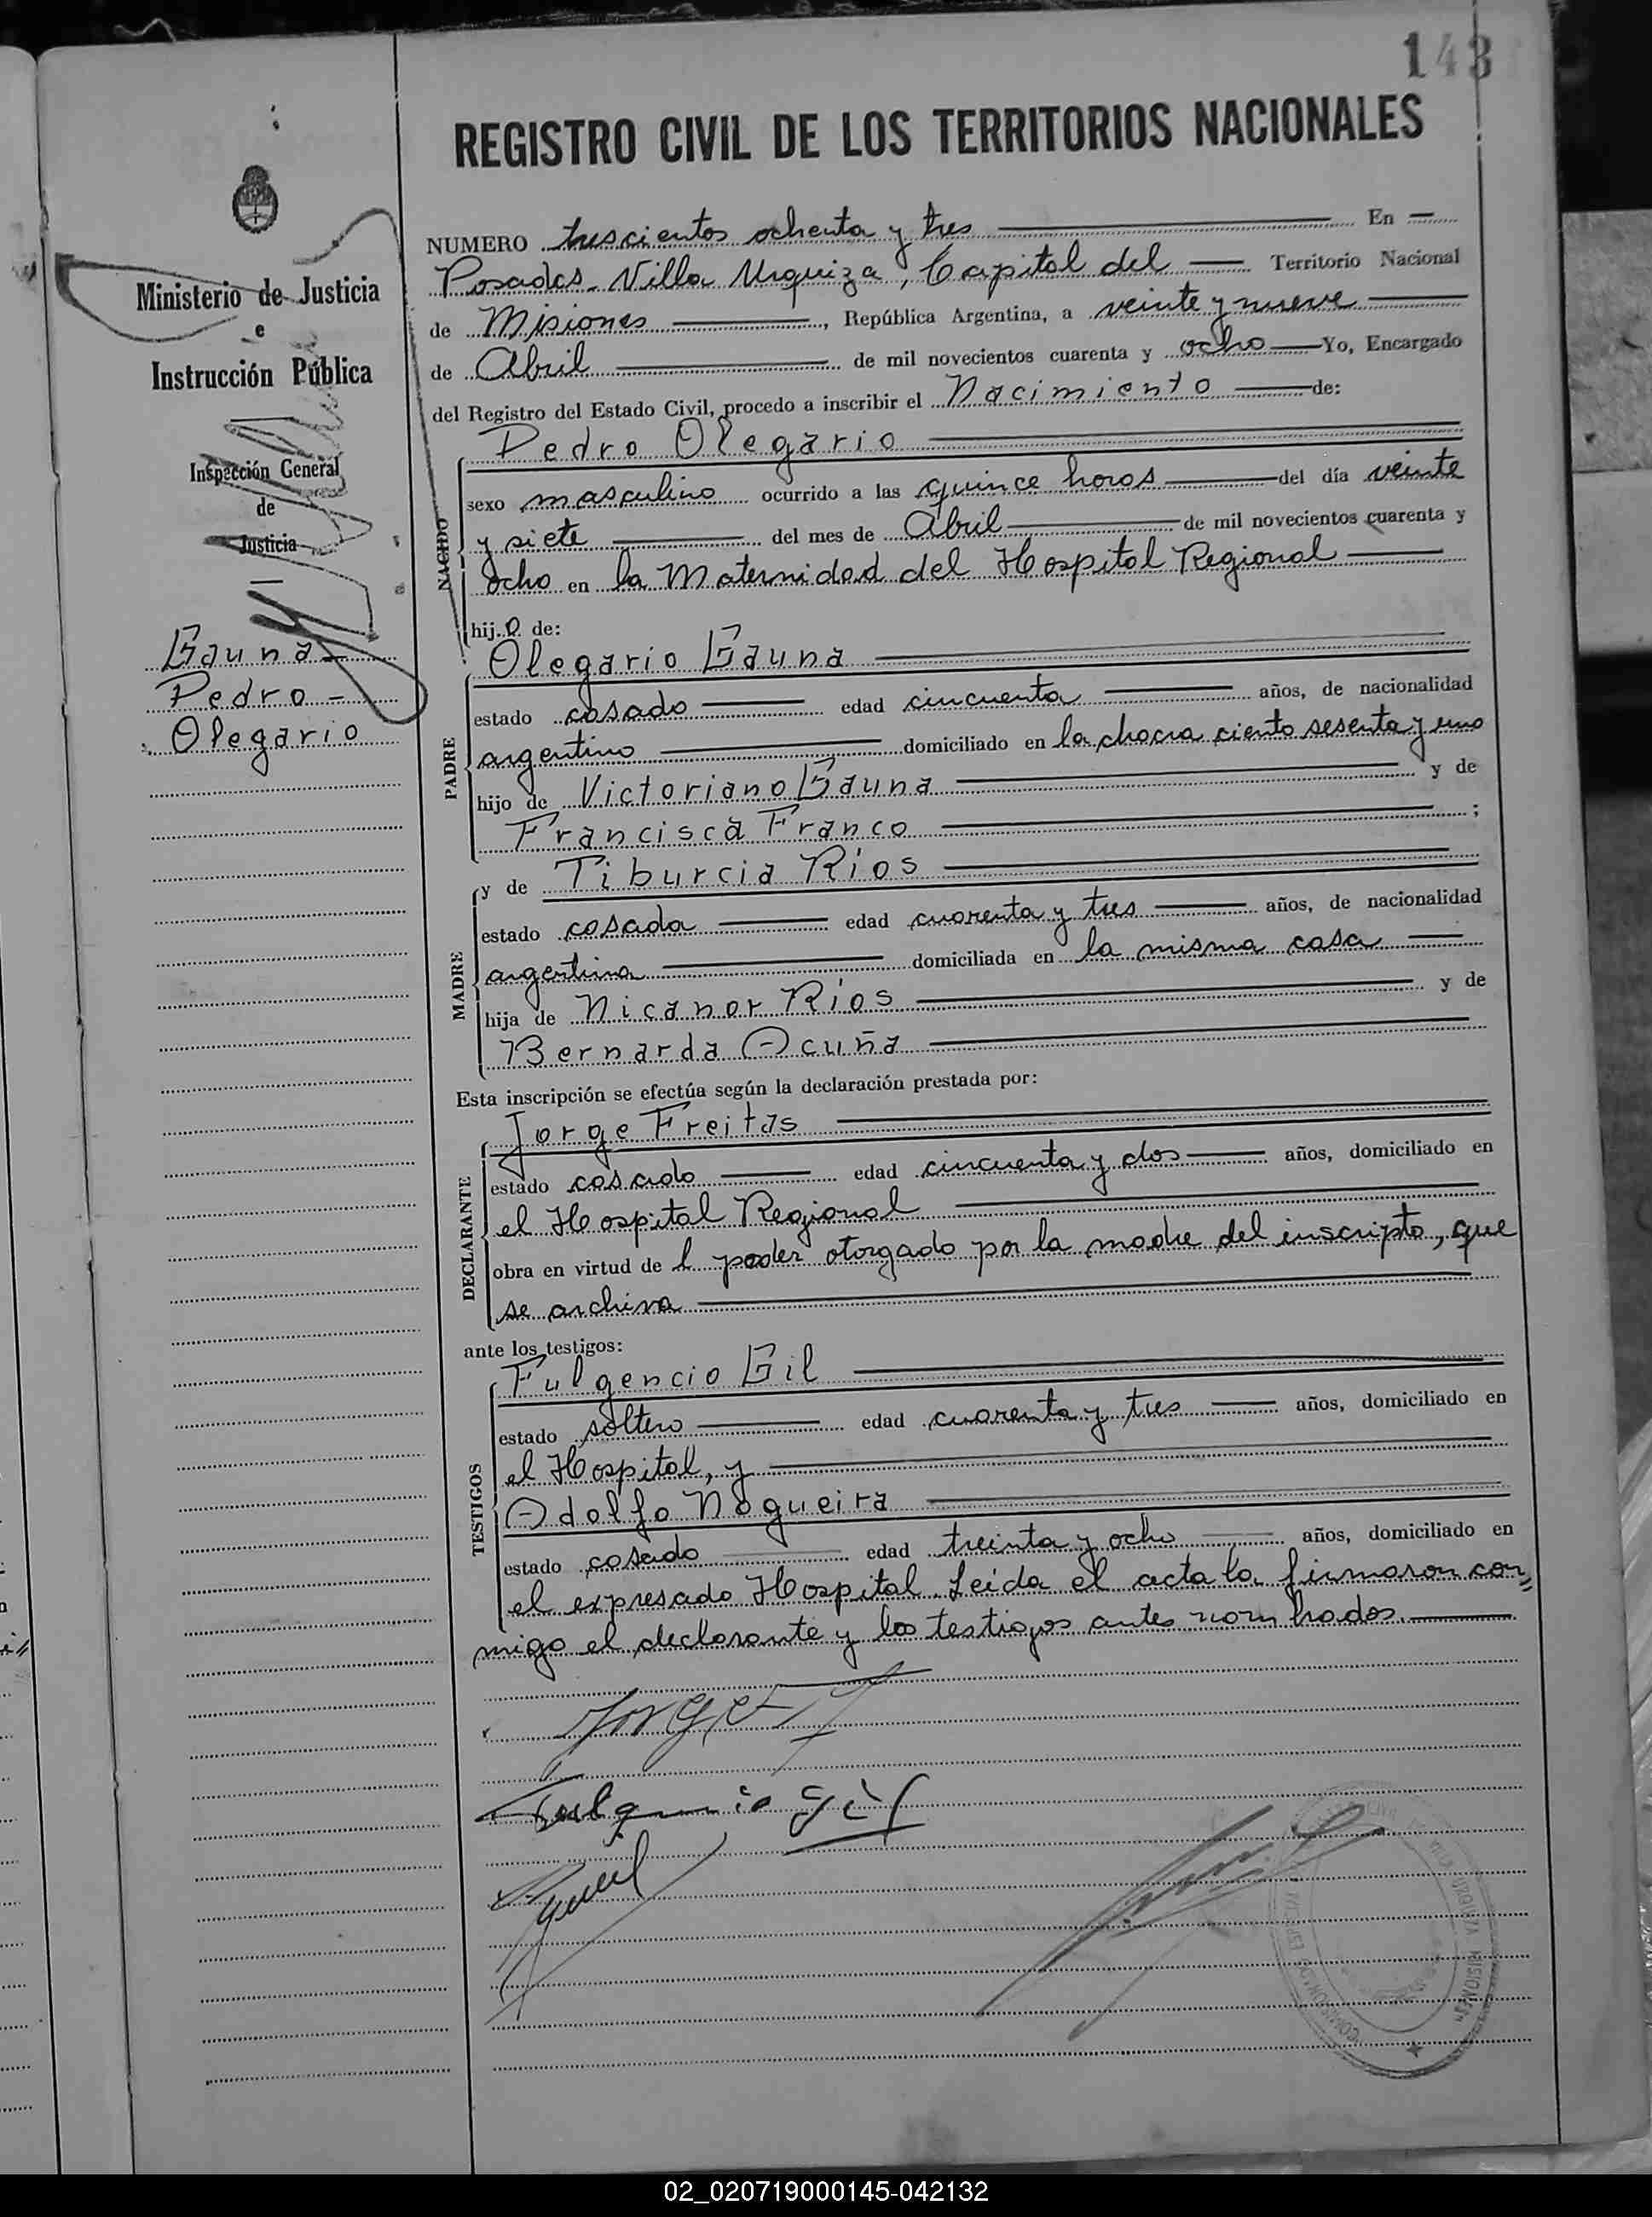 143
REGISTRO CIVIL DE LOS TERRITORIOS NACIONALES
Ministerio de Justicia
e
Instrucción Pública
Inspección General
de
Justicia
Gauna-
Pedro -
Olegario
NUMERO trescientos ochenta y tres En
Posadas - Villa Urquiza, Capital del Territorio Nacional
de Misiones, República Argentina, a veinte y nueve
de Abril de mil novecientos cuarenta y ocho Yo, Encargado
del Registro del Estado Civil, procedo a inscribir el Nacimiento de:
NACIDO
Pedro Olegario
sexo masculino ocurrido a las quince horas del día veinte
y siete del mes de Abril de mil novecientos cuarenta y
ocho en la Maternidad del Hospital Regional
hijo de:
PADRE
Olegario Gauna
estado casado edad cincuenta años, de nacionalidad
argentino domiciliado en la chacra ciento sesenta y uno
hijo de Victoriano Gauna y de
Francisca Franco ;
MADRE
y de Tiburcia Ríos
estado casada edad cuarenta y tres años, de nacionalidad
argentina domiciliada en la misma casa
hija de Nicanor Ríos y de
Bernarda Acuña
Esta inscripción se efectúa según la declaración prestada por:
DECLARANTE
Jorge Freitas
estado casado edad cincuenta y dos años, domiciliado en
el Hospital Regional
obra en virtud de l poder otorgado por la madre del inscripto, que
se archiva
ante los testigos:
TESTIGOS
Fulgencio Gil
estado soltero edad cuarenta y tres años, domiciliado en
el Hospital, y
Adolfo Nogueira
estado casado edad treinta y ocho años, domiciliado en
el expresado Hospital. Leida el acta la firmaron con=
migo el declarante y los testigos antes nombrados.
Jorge F
Fulgencio Gil
URQUIZA MISIONES
02_020719000145-042132